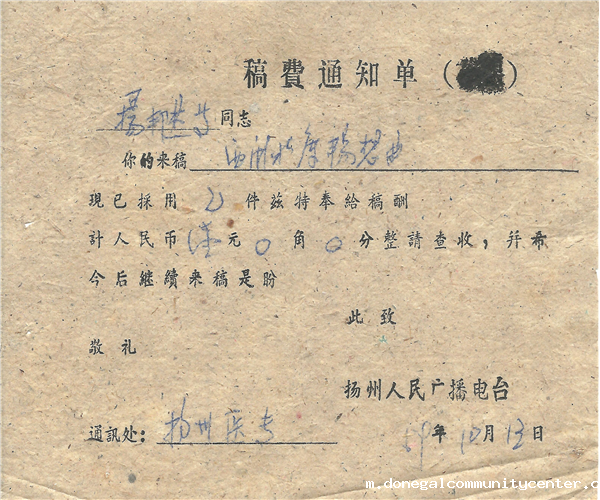 稿費通知单（）
同志
你的来稿
現已採用 2 件兹特奉給稿酬
計人民币 元 0 角 0 分整請查收，幷希
今后継續来稿是盼
此致
敬礼
扬州人民广播电台
通訊处：扬州医专 59年10月13日
m.donegalcommunitycenter.c